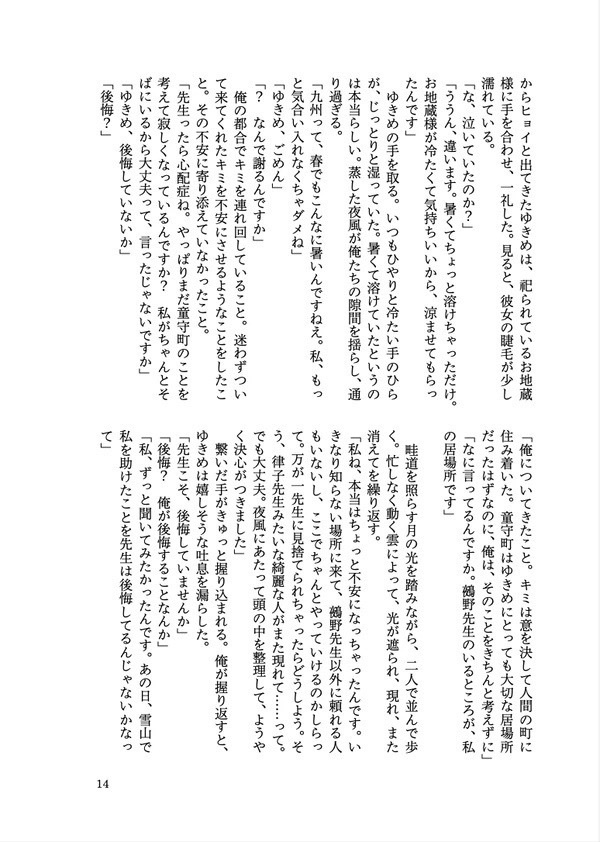 からヒョイと出てきたゆきめは、祀られているお地蔵
様に手を合わせ、一礼した。見ると、彼女の睫毛が少し
濡れている。
「な、泣いていたのか?」
「ううん、違います。暑くてちょっと溶けちゃっただけ。
お地蔵様が冷たくて気持ちいいから、涼ませてもらっ
たんです」
ゆきめの手を取る。いつもひやりと冷たい手のひら
が、じっとりと湿っていた。暑くて溶けていたというの
は本当らしい。蒸した夜風が俺たちの隙間を揺らし、通
り過ぎる。
「九州って、春でもこんなに暑いんですねえ。私、もっ
と気合い入れなくちゃダメね」
「ゆきめ、ごめん」
「? なんで謝るんですか」
俺の都合でキミを連れ回していること。迷わずつい
て来てくれたキミを不安にさせるようなことをしたこ
と。その不安に寄り添えていなかったこと。
「先生ったら心配症ね。やっぱりまだ童守町のことを
考えて寂しくなっているんですか? 私がちゃんとそ
ばにいるから大丈夫って、言ったじゃないですか」
「ゆきめ、後悔していないか」
「後悔?」
「俺についてきたこと。キミは意を決して人間の町に
住み着いた。童守町はゆきめにとっても大切な居場所
だったはずなのに、俺は、そのことをきちんと考えずに」
「なに言ってるんですか。鵺野先生のいるところが、私
の居場所です」
畦道を照らす月の光を踏みながら、二人で並んで歩
く。忙しなく動く雲によって、光が遮られ、現れ、また
消えてを繰り返す。
「私ね、本当はちょっと不安になっちゃったんです。い
きなり知らない場所に来て、鵺野先生以外に頼れる人
もいないし、ここでちゃんとやっていけるのかしらっ
て。万が一先生に見捨てられちゃったらどうしよう。そ
う、律子先生みたいな綺麗な人がまた現れて……って。
でも大丈夫。夜風にあたって頭の中を整理して、ようや
く決心がつきました」
繋いだ手がきゅっと握り込まれる。俺が握り返すと、
ゆきめは嬉しそうな吐息を漏らした。
「先生こそ、後悔していませんか」
「後悔? 俺が後悔することなんか」
「私、ずっと聞いてみたかったんです。あの日、雪山で
私を助けたことを先生は後悔してるんじゃないかなっ
て」
14